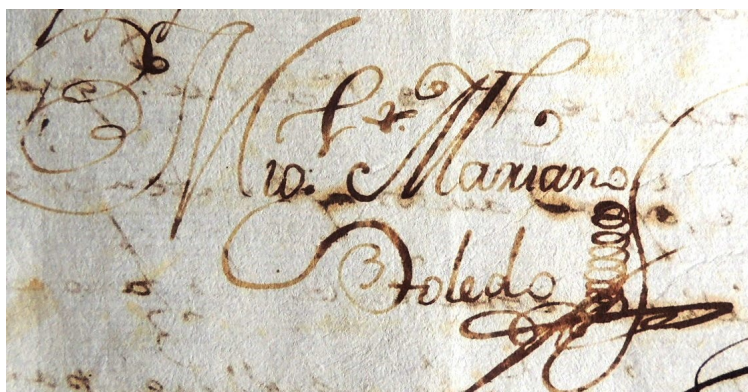 Mio. Sr. Mariano
Toledo